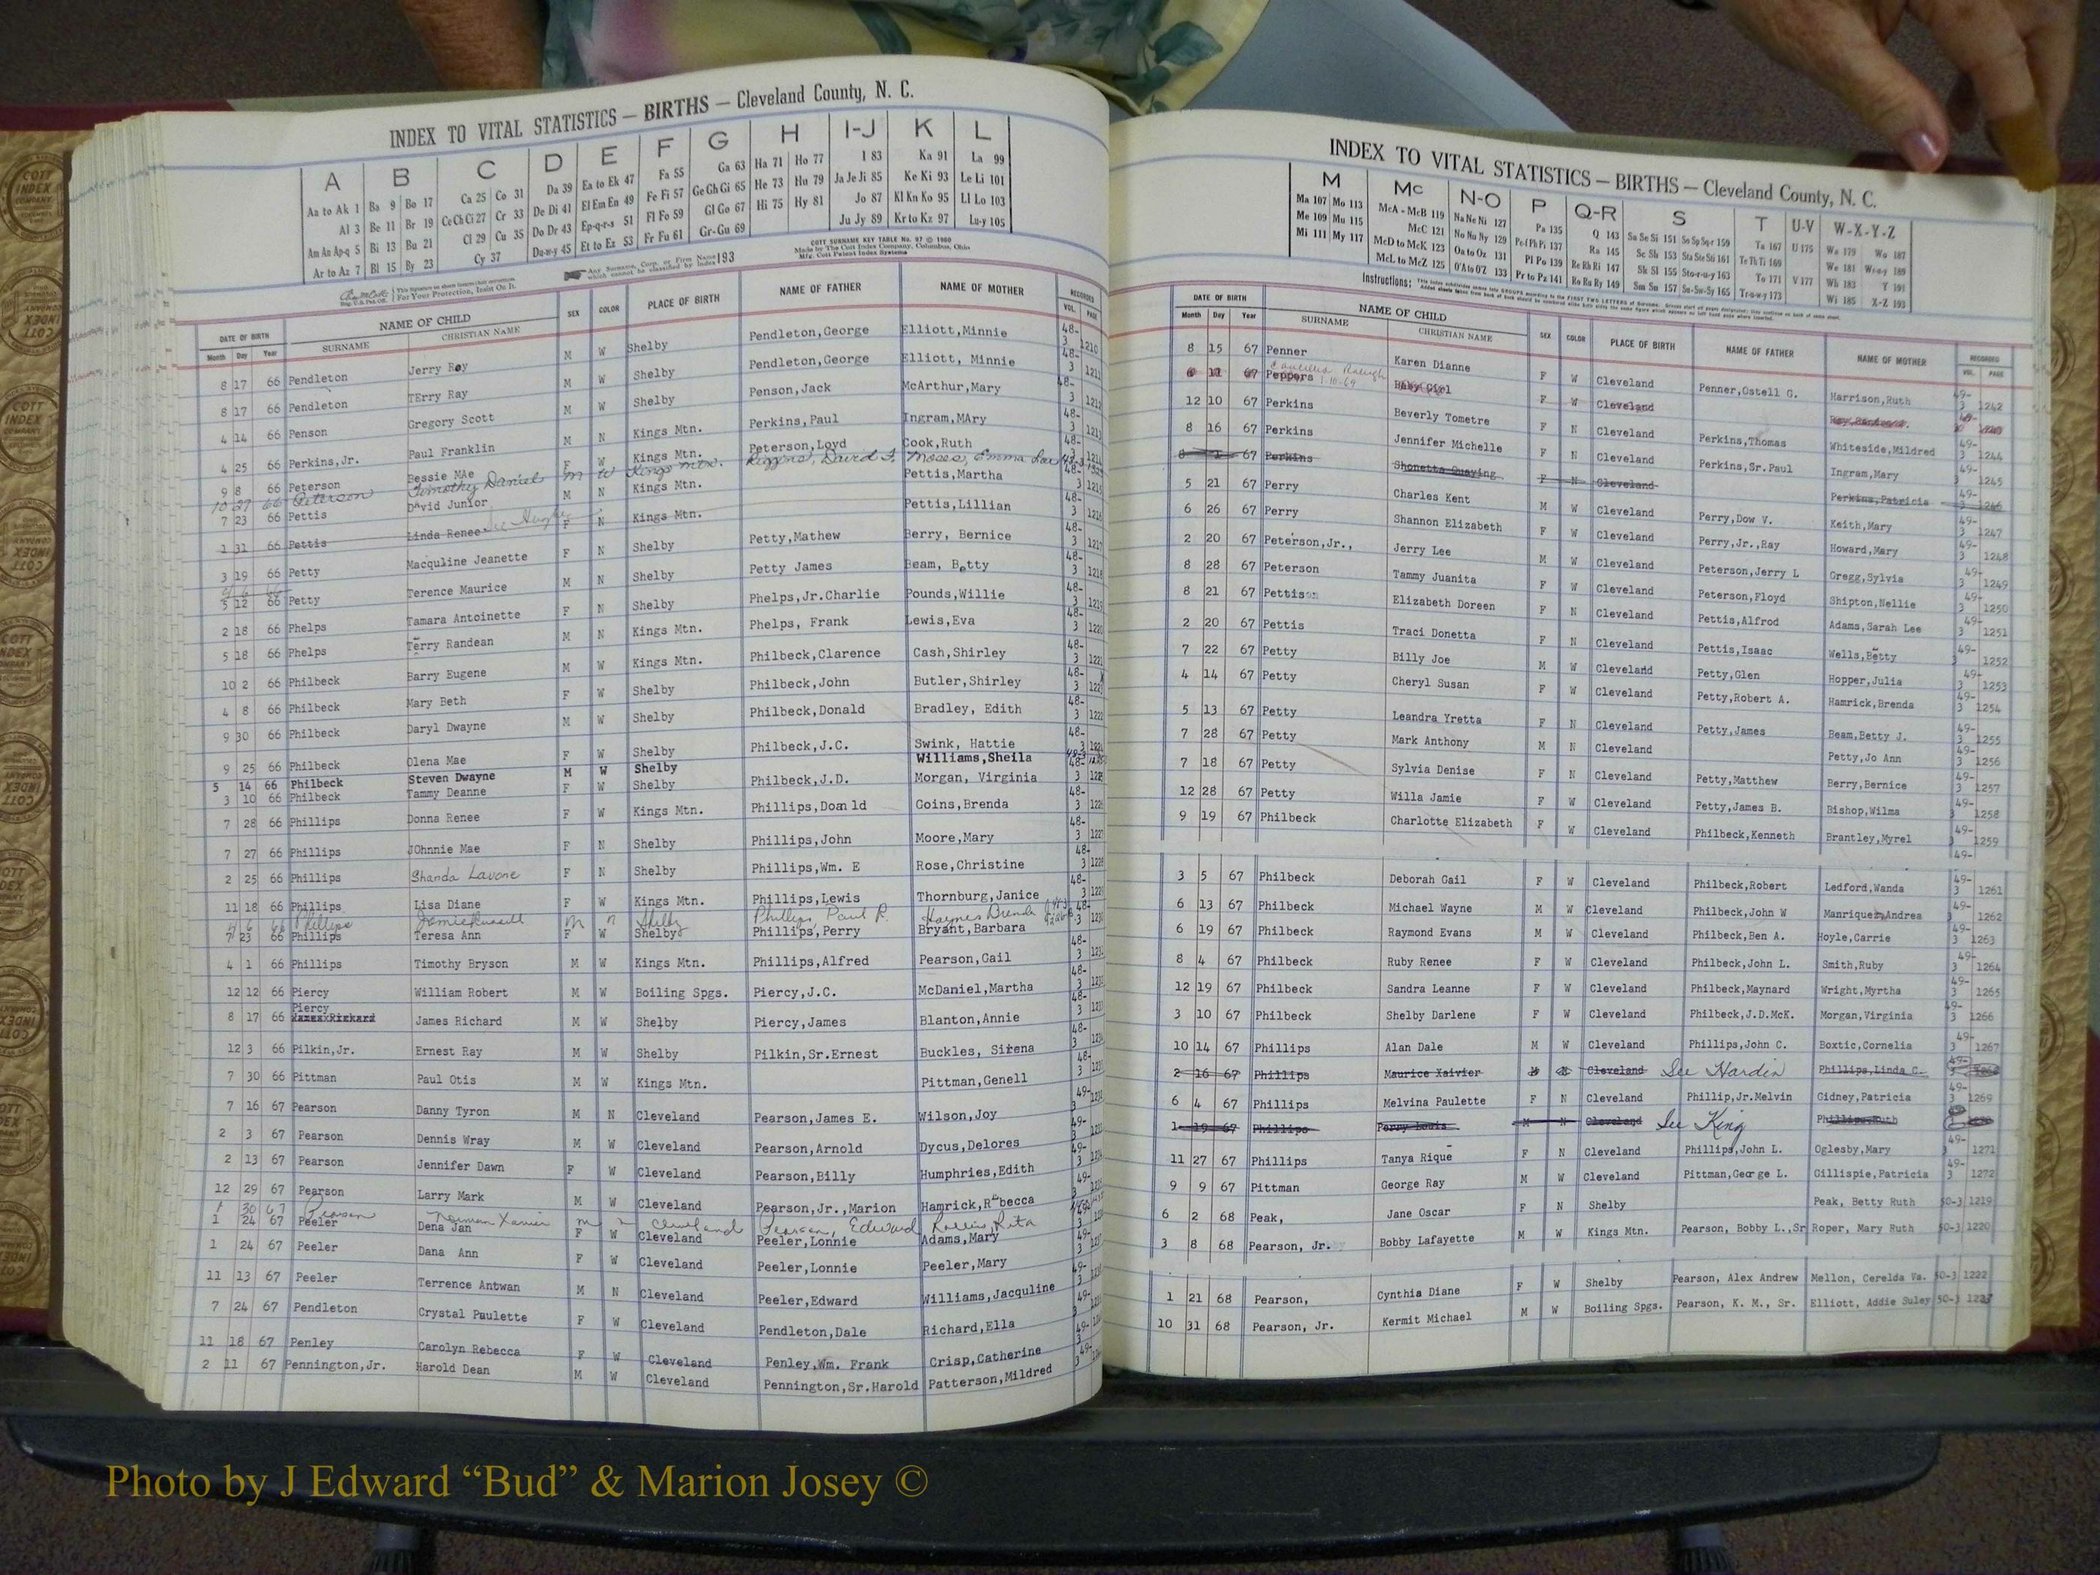 INDEX TO VITAL STATISTICS — BIRTHS — Cleveland County, N. C.
A B C D E F G H I-J K L
Aa to Ak 1 Ba 9 Bo 17 Ca 25 Co 31 Da 39 Ea to Ek 47 Fa 55 Ga 63 Ha 71 Ho 77 I 83 Ka 91 La 99
Al 3 Be 11 Br 19 Ce Ch Ci 27 Cr 33 De Di 41 El Em En 49 Fe Fi 57 Ge Gh Gi 65 He 73 Hu 79 Ja Je Ji 85 Ke Ki 93 Le Li 101
Am An Ap-q 5 Bi 13 Bu 21 Cl 29 Cu 35 Do Dr 43 Ep-q-r-s 51 Fl Fo 59 Gl Go 67 Hi 75 Hy 81 Jo 87 Kl Kn Ko 95 Ll Lo 103
Ar to Az 7 Bl 15 By 23 Cy 37 Du-w-y 45 Et to Ez 53 Fr Fu 61 Gr-Gu 69 Ju Jy 89 Kr to Kz 97 Lu-y 105
COTT SURNAME KEY TABLE No. 97 © 1960
Made by The Cott Index Company, Columbus, Ohio
Mfg. Cott Patent Index Systems
Any Surname, Corp. or Firm Name which cannot be classified by Index 193
For Your Protection, Insist On It.
DATE OF BIRTH NAME OF CHILD SEX COLOR PLACE OF BIRTH NAME OF FATHER NAME OF MOTHER RECORDED
Month Day Year SURNAME CHRISTIAN NAME VOL. PAGE
8 17 66 Pendleton Jerry Roy M W Shelby Pendleton,George Elliott,Minnie 48-3 1210
8 17 66 Pendleton TErry Ray M W Shelby Pendleton,George Elliott, Minnie 48-3 1211
4 14 66 Penson Gregory Scott M W Shelby Penson,Jack McArthur,Mary 48-3 1212
4 25 66 Perkins,Jr. Paul Franklin M N Kings Mtn. Perkins,Paul Ingram,MAry 48-3 1213
9 8 66 Peterson Bessie MAe F W Kings Mtn. Peterson,Loyd Cook,Ruth 48-3 1214
10 27 66 Peterson Timothy Daniel M W Kings Mtn. David Moses, Emma Lou
7 23 66 Pettis David Junior M N Kings Mtn. Pettis,Martha 48-3 1215
1 31 66 Pettis Linda Renee See F N Kings Mtn. Pettis,Lillian 48-3 1216
3 19 66 Petty Macquline Jeanette F N Shelby Petty,Mathew Berry, Bernice 48-3 1217
5 12 66 Petty Terence Maurice M N Shelby Petty James Beam, Betty 48-3 1218
2 18 66 Phelps Tamara Antoinette F N Shelby Phelps,Jr.Charlie Pounds,Willie 48-3 1219
5 18 66 Phelps Terry Randean M N Kings Mtn. Phelps, Frank Lewis,Eva 48-3 1220
10 2 66 Philbeck Barry Eugene M W Kings Mtn. Philbeck,Clarence Cash,Shirley 48-3 1221
4 8 66 Philbeck Mary Beth F W Shelby Philbeck,John Butler,Shirley 48-3
9 30 66 Philbeck Daryl Dwayne M W Shelby Philbeck,Donald Bradley, Edith 48-3
9 25 66 Philbeck Olena Mae F W Shelby Philbeck,J.C. Swink, Hattie 48-3
5 14 66 Philbeck Steven Dwayne M W Shelby Williams,Sheila
3 10 66 Philbeck Tammy Deanne F W Shelby Philbeck,J.D. Morgan, Virginia 48-3
7 28 66 Phillips Donna Renee F W Kings Mtn. Phillips,Donald Goins,Brenda 48-3 1226
7 27 66 Phillips JOhnnie Mae F N Shelby Phillips,John Moore,Mary 48-3 1227
2 25 66 Phillips Shanda Lavone F N Shelby Phillips,Wm. E Rose,Christine 48-3 1228
11 18 66 Phillips Lisa Diane F W Kings Mtn. Phillips,Lewis Thornburg,Janice 48-3 1229
Phillips M N Shelby Phillips, Paul R. Haynes Brenda
7 23 66 Phillips Teresa Ann F W Shelby Phillips,Perry Bryant,Barbara 48-3 1230
4 1 66 Phillips Timothy Bryson M W Kings Mtn. Phillips,Alfred Pearson,Gail 48-3
12 12 66 Piercy William Robert M W Boiling Spgs. Piercy,J.C. McDaniel,Martha 48-3
8 17 66 Piercy James Richard M W Shelby Piercy,James Blanton,Annie 48-3
12 3 66 Pilkin,Jr. Ernest Ray M W Shelby Pilkin,Sr.Ernest Buckles, Sirena 48-3
7 30 66 Pittman Paul Otis M W Kings Mtn. Pittman,Genell 48-3
7 16 67 Pearson Danny Tyron M N Cleveland Pearson,James E. Wilson,Joy 49-3
2 3 67 Pearson Dennis Wray M W Cleveland Pearson,Arnold Dycus,Delores 49-3
2 13 67 Pearson Jennifer Dawn F W Cleveland Pearson,Billy Humphries,Edith 49-3
12 29 67 Pearson Larry Mark M W Cleveland Pearson,Jr.,Marion Hamrick,Rebecca 49-3
1 30 67 Pearson Norman Xavier M N Cleveland Pearson, Edward Rollins, Rita
1 24 67 Peeler Dena Jan F W Cleveland Peeler,Lonnie Adams,Mary 49-3
1 24 67 Peeler Dana Ann F W Cleveland Peeler,Lonnie Peeler,Mary 49-3
11 13 67 Peeler Terrence Antwan M N Cleveland Peeler,Edward Williams,Jacquline 49-3
7 24 67 Pendleton Crystal Paulette F W Cleveland Pendleton,Dale Richard,Ella 49-3
11 18 67 Penley Carolyn Rebecca F W Cleveland Penley,Wm. Frank Crisp,Catherine 49-3
2 11 67 Pennington,Jr. Harold Dean M W Cleveland Pennington,Sr.Harold Patterson,Mildred
INDEX TO VITAL STATISTICS — BIRTHS — Cleveland County, N. C.
M Mc N-O P Q-R S T U-V W-X-Y-Z
Ma 107 Mo 113 McA - McB 119 Na Ne Ni 127 Pa 135 Q 143 Sa Se Si 151 So Sp Sq-r 159 Ta 167 U 175 Wa 179 Wo 187
Me 109 Mu 115 McC 121 No Nu Ny 129 Pe-f Ph Pi 137 Ra 145 Sc Sh 153 Sta Ste Sti 161 Te Th Ti 169 We 181 Wr-u-y 189
Mi 111 My 117 McD to McK 123 Oa to Oz 131 Pl Po 139 Re Rh Ri 147 Sk Sl 155 Sto-r-u-y 163 To 171 V 177 Wh 183 Y 191
McL to McZ 125 O'A to O'Z 133 Pr to Pz 141 Ro Ru Ry 149 Sm Sn 157 Su-Sw-Sy 165 Tr-u-w-y 173 Wi 185 X-Z 193
DATE OF BIRTH NAME OF CHILD SEX COLOR PLACE OF BIRTH NAME OF FATHER NAME OF MOTHER RECORDED
Month Day Year SURNAME CHRISTIAN NAME VOL. PAGE
8 15 67 Penner Karen Dianne F W Cleveland Penner,Ostell G. Harrison,Ruth 49-3 1242
Cancelled Raleigh 1-10-69
67 Peppers Baby Girl F W Cleveland
12 10 67 Perkins Beverly Tometre F N Cleveland Perkins,Thomas Whiteside,Mildred 49-3 1244
8 16 67 Perkins Jennifer Michelle F N Cleveland Perkins,Sr.Paul Ingram,Mary 49-3 1245
8 1 67 Perkins Shonetta Quaying F N Cleveland Perkins,Patricia 49-3 1246
5 21 67 Perry Charles Kent M W Cleveland Perry,Dow V. Keith,Mary 49-3 1247
6 26 67 Perry Shannon Elizabeth F W Cleveland Perry,Jr.,Ray Howard,Mary 49-3 1248
2 20 67 Peterson,Jr., Jerry Lee M W Cleveland Peterson,Jerry L Gregg,Sylvia 49-3 1249
8 28 67 Peterson Tammy Juanita F W Cleveland Peterson,Floyd Shipton,Nellie 49-3 1250
8 21 67 Pettis Elizabeth Doreen F N Cleveland Pettis,Alfrod Adams,Sarah Lee 49-3 1251
2 20 67 Pettis Traci Donetta F N Cleveland Pettis,Isaac Wells,Betty 49-3 1252
7 22 67 Petty Billy Joe M W Cleveland Petty,Glen Hopper,Julia 49-3 1253
4 14 67 Petty Cheryl Susan F W Cleveland Petty,Robert A. Hamrick,Brenda 49-3 1254
5 13 67 Petty Leandra Yretta F N Cleveland Petty,James Beam,Betty J. 49-3 1255
7 28 67 Petty Mark Anthony M N Cleveland Petty,Jo Ann 49-3 1256
7 18 67 Petty Sylvia Denise F N Cleveland Petty,Matthew Berry,Bernice 49-3 1257
12 28 67 Petty Willa Jamie F W Cleveland Petty,James B. Bishop,Wilma 49-3 1258
9 19 67 Philbeck Charlotte Elizabeth F W Cleveland Philbeck,Kenneth Brantley,Myrel 49-3 1259
49-
3 5 67 Philbeck Deborah Gail F W Cleveland Philbeck,Robert Ledford,Wanda 49-3 1261
6 13 67 Philbeck Michael Wayne M W Cleveland Philbeck,John W Manriquez,Andrea 49-3 1262
6 19 67 Philbeck Raymond Evans M W Cleveland Philbeck,Ben A. Hoyle,Carrie 49-3 1263
8 4 67 Philbeck Ruby Renee F W Cleveland Philbeck,John L. Smith,Ruby 49-3 1264
12 19 67 Philbeck Sandra Leanne F W Cleveland Philbeck,Maynard Wright,Myrtha 49-3 1265
3 10 67 Philbeck Shelby Darlene F W Cleveland Philbeck,J.D.McK. Morgan,Virginia 49-3 1266
10 14 67 Phillips Alan Dale M W Cleveland Phillips,John C. Boxtic,Cornelia 49-3 1267
2 16 67 Phillips Maurice Xaivier M N Cleveland See Hardin Phillips,Linda C. 49-3 1268
6 4 67 Phillips Melvina Paulette F N Cleveland Phillip,Jr.Melvin Gidney,Patricia 49-3 1269
1 19 67 Phillips Perry Louis M N Cleveland See King Phillips,Ruth
11 27 67 Phillips Tanya Rique F N Cleveland Phillips,John L. Oglesby,Mary 49-3 1271
9 9 67 Pittman George Ray M W Cleveland Pittman,George L. Gillispie,Patricia 49-3 1272
6 2 68 Peak, Jane Oscar F N Shelby Peak, Betty Ruth 50-3 1219
3 8 68 Pearson, Jr. Bobby Lafayette M W Kings Mtn. Pearson, Bobby L.,Sr Roper, Mary Ruth 50-3 1220
1 21 68 Pearson, Cynthia Diane F W Shelby Pearson, Alex Andrew Mellon, Cerelda Va. 50-3 1222
10 31 68 Pearson, Jr. Kermit Michael M W Boiling Spgs. Pearson, K. M., Sr. Elliott, Addie Suley 50-3
Photo by J Edward “Bud” & Marion Josey ©